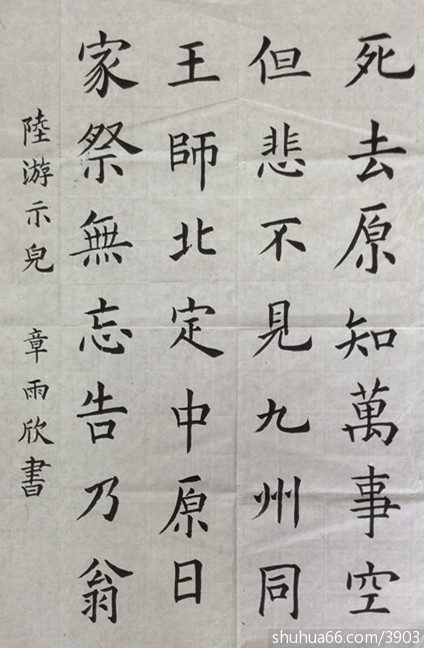 死去原知萬事空
但悲不見九州同
王師北定中原日
家祭無忘告乃翁
陸游示兒 章雨欣書
shuhua66.com/3903